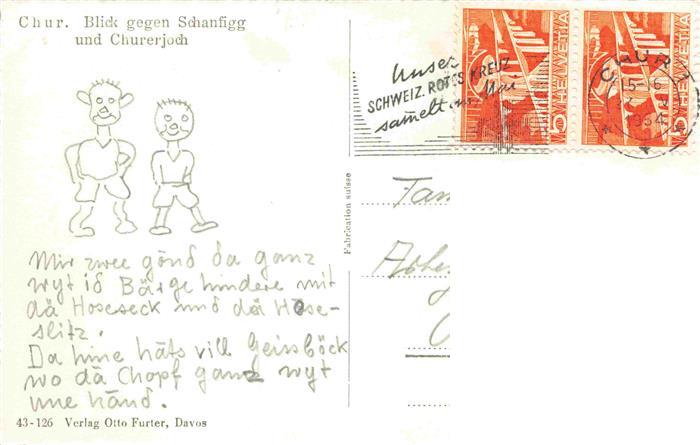 Chur. Blick gegen Schanfigg
und Churerjoch
Mir zwee gönd da ganz
wyt is Bärge hindere mit
dä Hoseseck und dä Hose-
slitz.
Da hine häts vill Geissböck
wo dä Chopf ganz wyt
une händ.
43-126 Verlag Otto Furter, Davos
Fabrication suisse
Unser
SCHWEIZ. ROTES KREUZ
sam̄elt im Mai
HELVETIA
5
HELVETIA
5
CHUR 1
15-16
1954
Fam